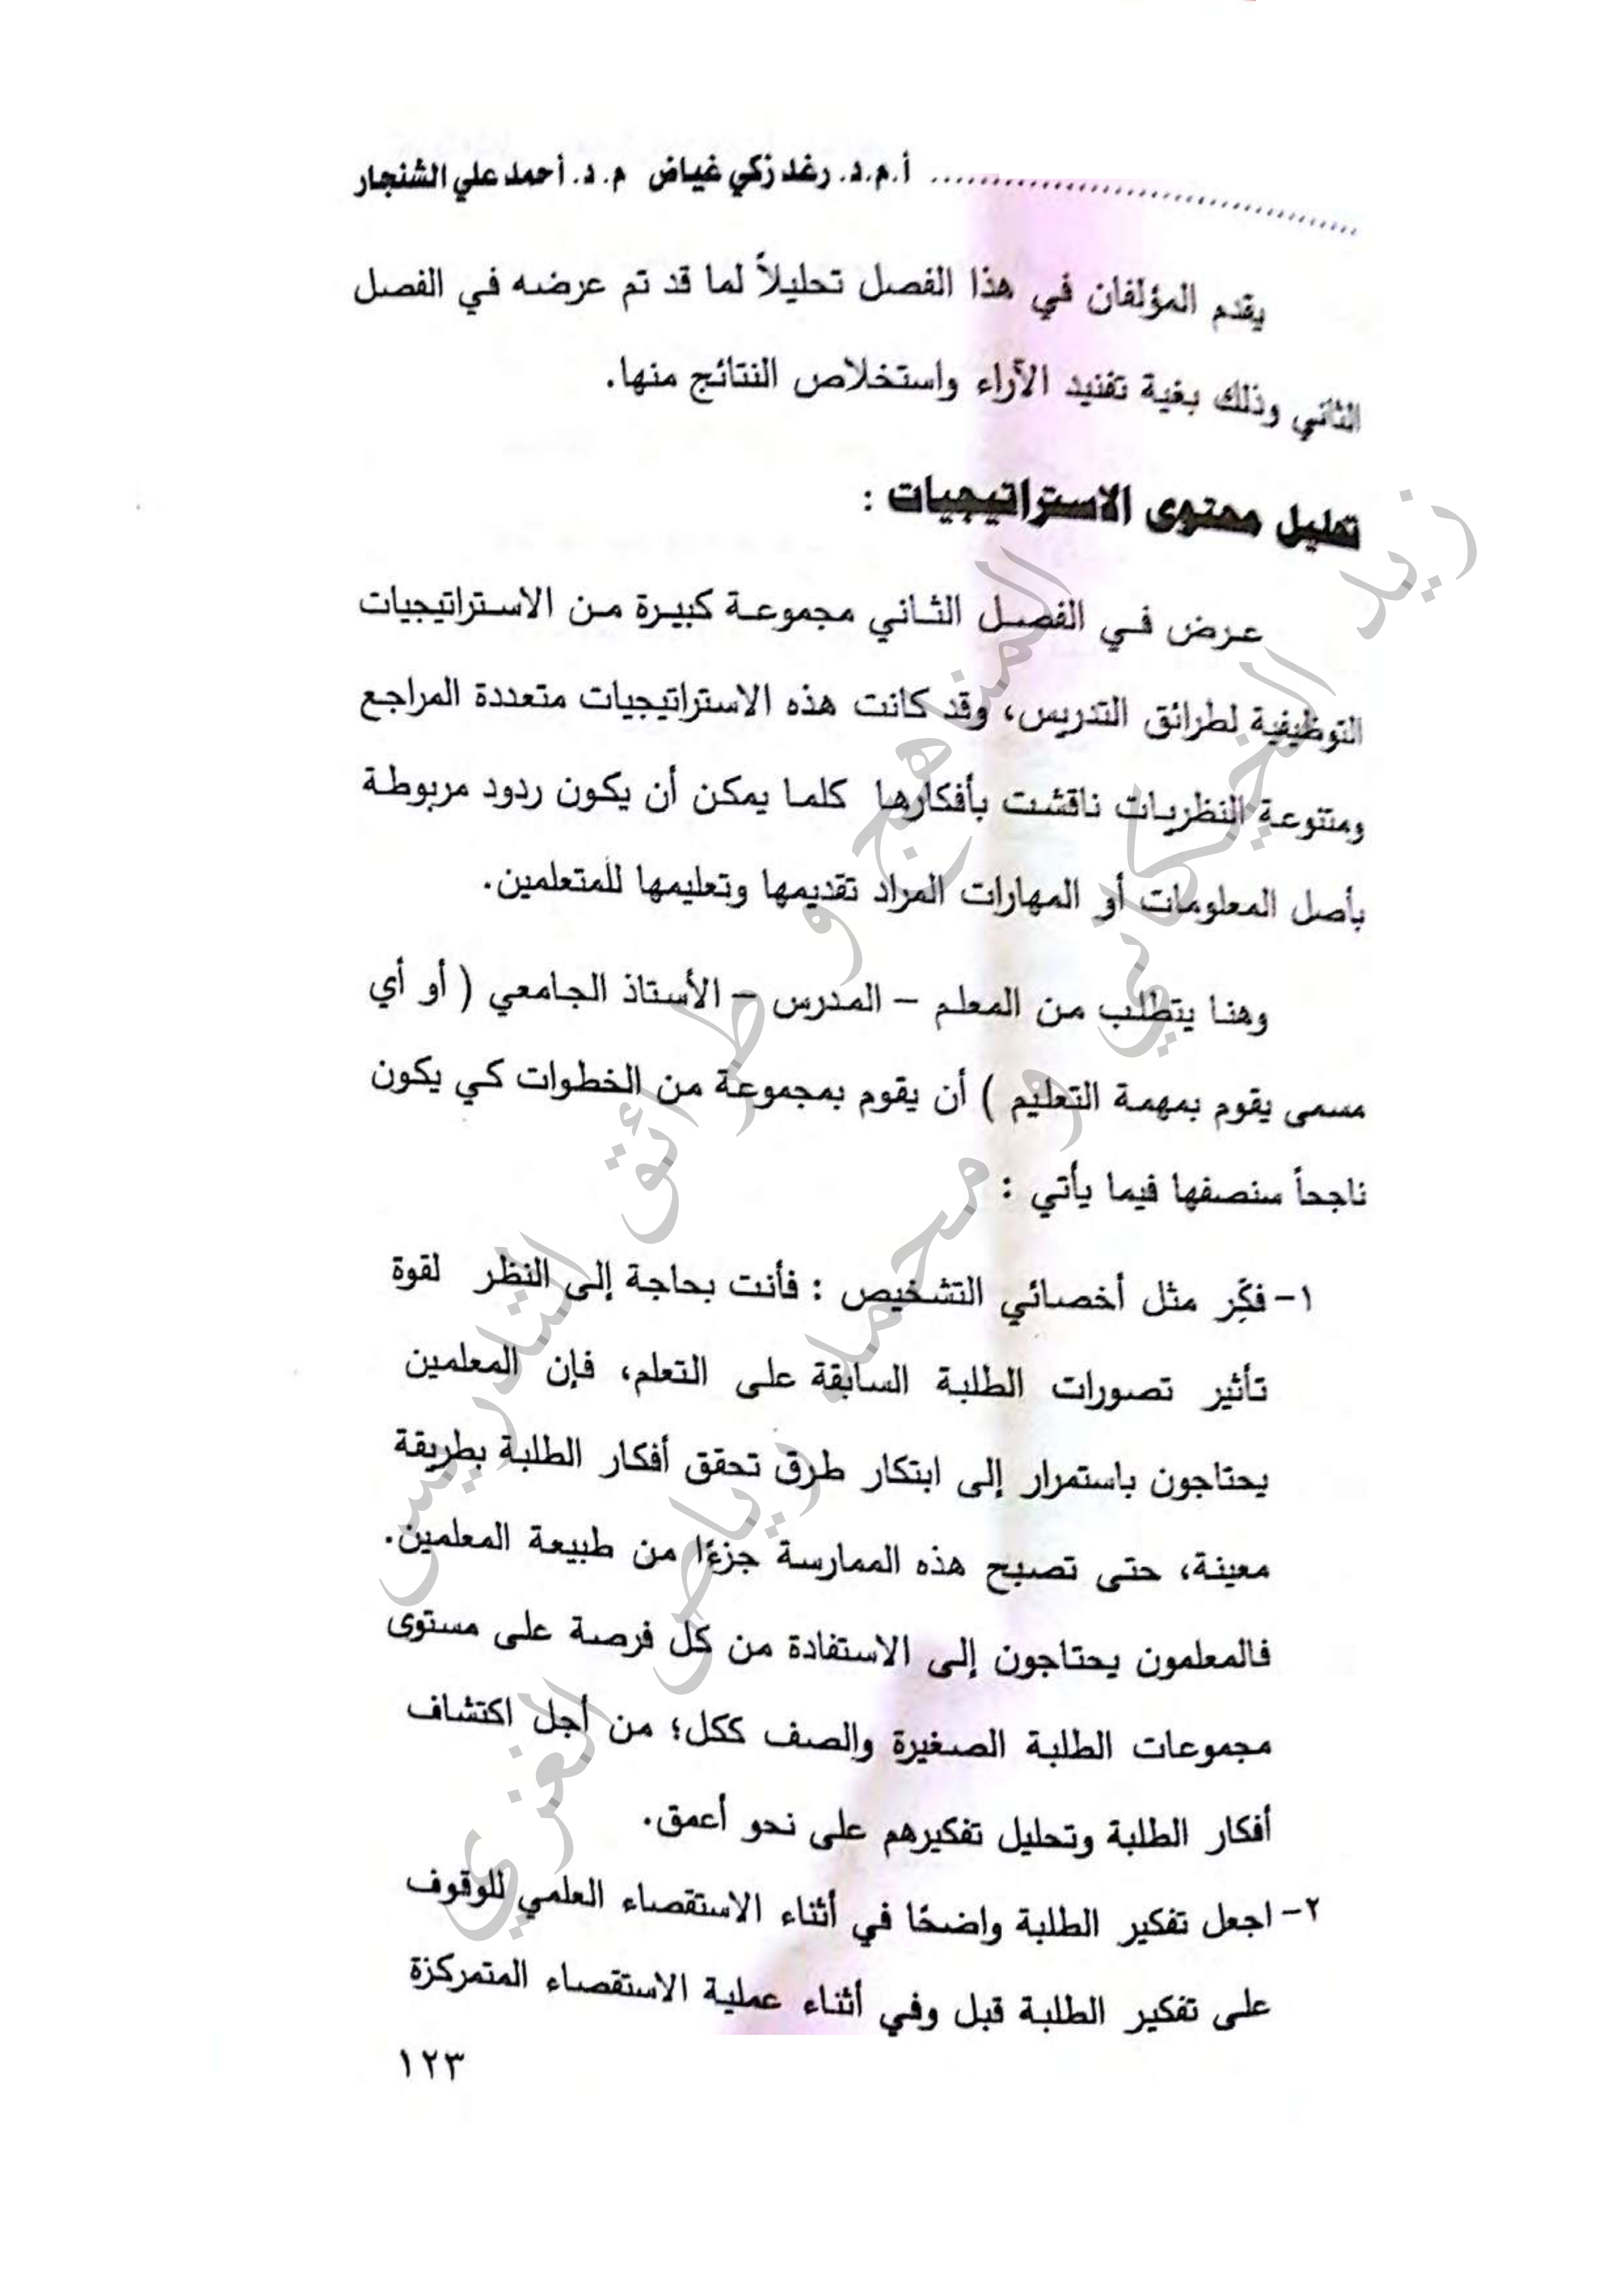 أ.م.د. رغد زكي غياض م.د. أحمد علي الشنجار
يقدم المؤلفان في هذا الفصل تحليلاً لما قد تم عرضه في الفصل
الثاني وذلك بغية تفنيد الآراء واستخلاص النتائج منها.
تحليل محتوى الاستراتيجيات :
عرض في الفصل الثاني مجموعة كبيرة من الاستراتيجيات
التوظيفية لطرائق التدريس، وقد كانت هذه الاستراتيجيات متعددة المراجع
ومتنوعة النظريات ناقشت بأفكارها كلما يمكن أن يكون ردود مربوطة
بأصل المعلومات أو المهارات المراد تقديمها وتعليمها للمتعلمين.
وهنا يتطلب من المعلم – المدرس – الأستاذ الجامعي ( أو أي
مسمى يقوم بمهمة التعليم ) أن يقوم بمجموعة من الخطوات كي يكون
ناجحاً سنصفها فيما يأتي :
١- فكِّر مثل أخصائي التشخيص : فأنت بحاجة إلى النظر لقوة
تأثير تصورات الطلبة السابقة على التعلم، فإن المعلمين
يحتاجون باستمرار إلى ابتكار طرق تحقق أفكار الطلبة بطريقة
معينة، حتى تصبح هذه الممارسة جزءًا من طبيعة المعلمين.
فالمعلمون يحتاجون إلى الاستفادة من كل فرصة على مستوى
مجموعات الطلبة الصغيرة والصف ككل؛ من أجل اكتشاف
أفكار الطلبة وتحليل تفكيرهم على نحو أعمق.
٢- اجعل تفكير الطلبة واضحًا في أثناء الاستقصاء العلمي للوقوف
على تفكير الطلبة قبل وفي أثناء عملية الاستقصاء المتمركزة
١٢٣
المناهج و طرائق التدريس
زيد الخيكاني و محمد رياض الغزي